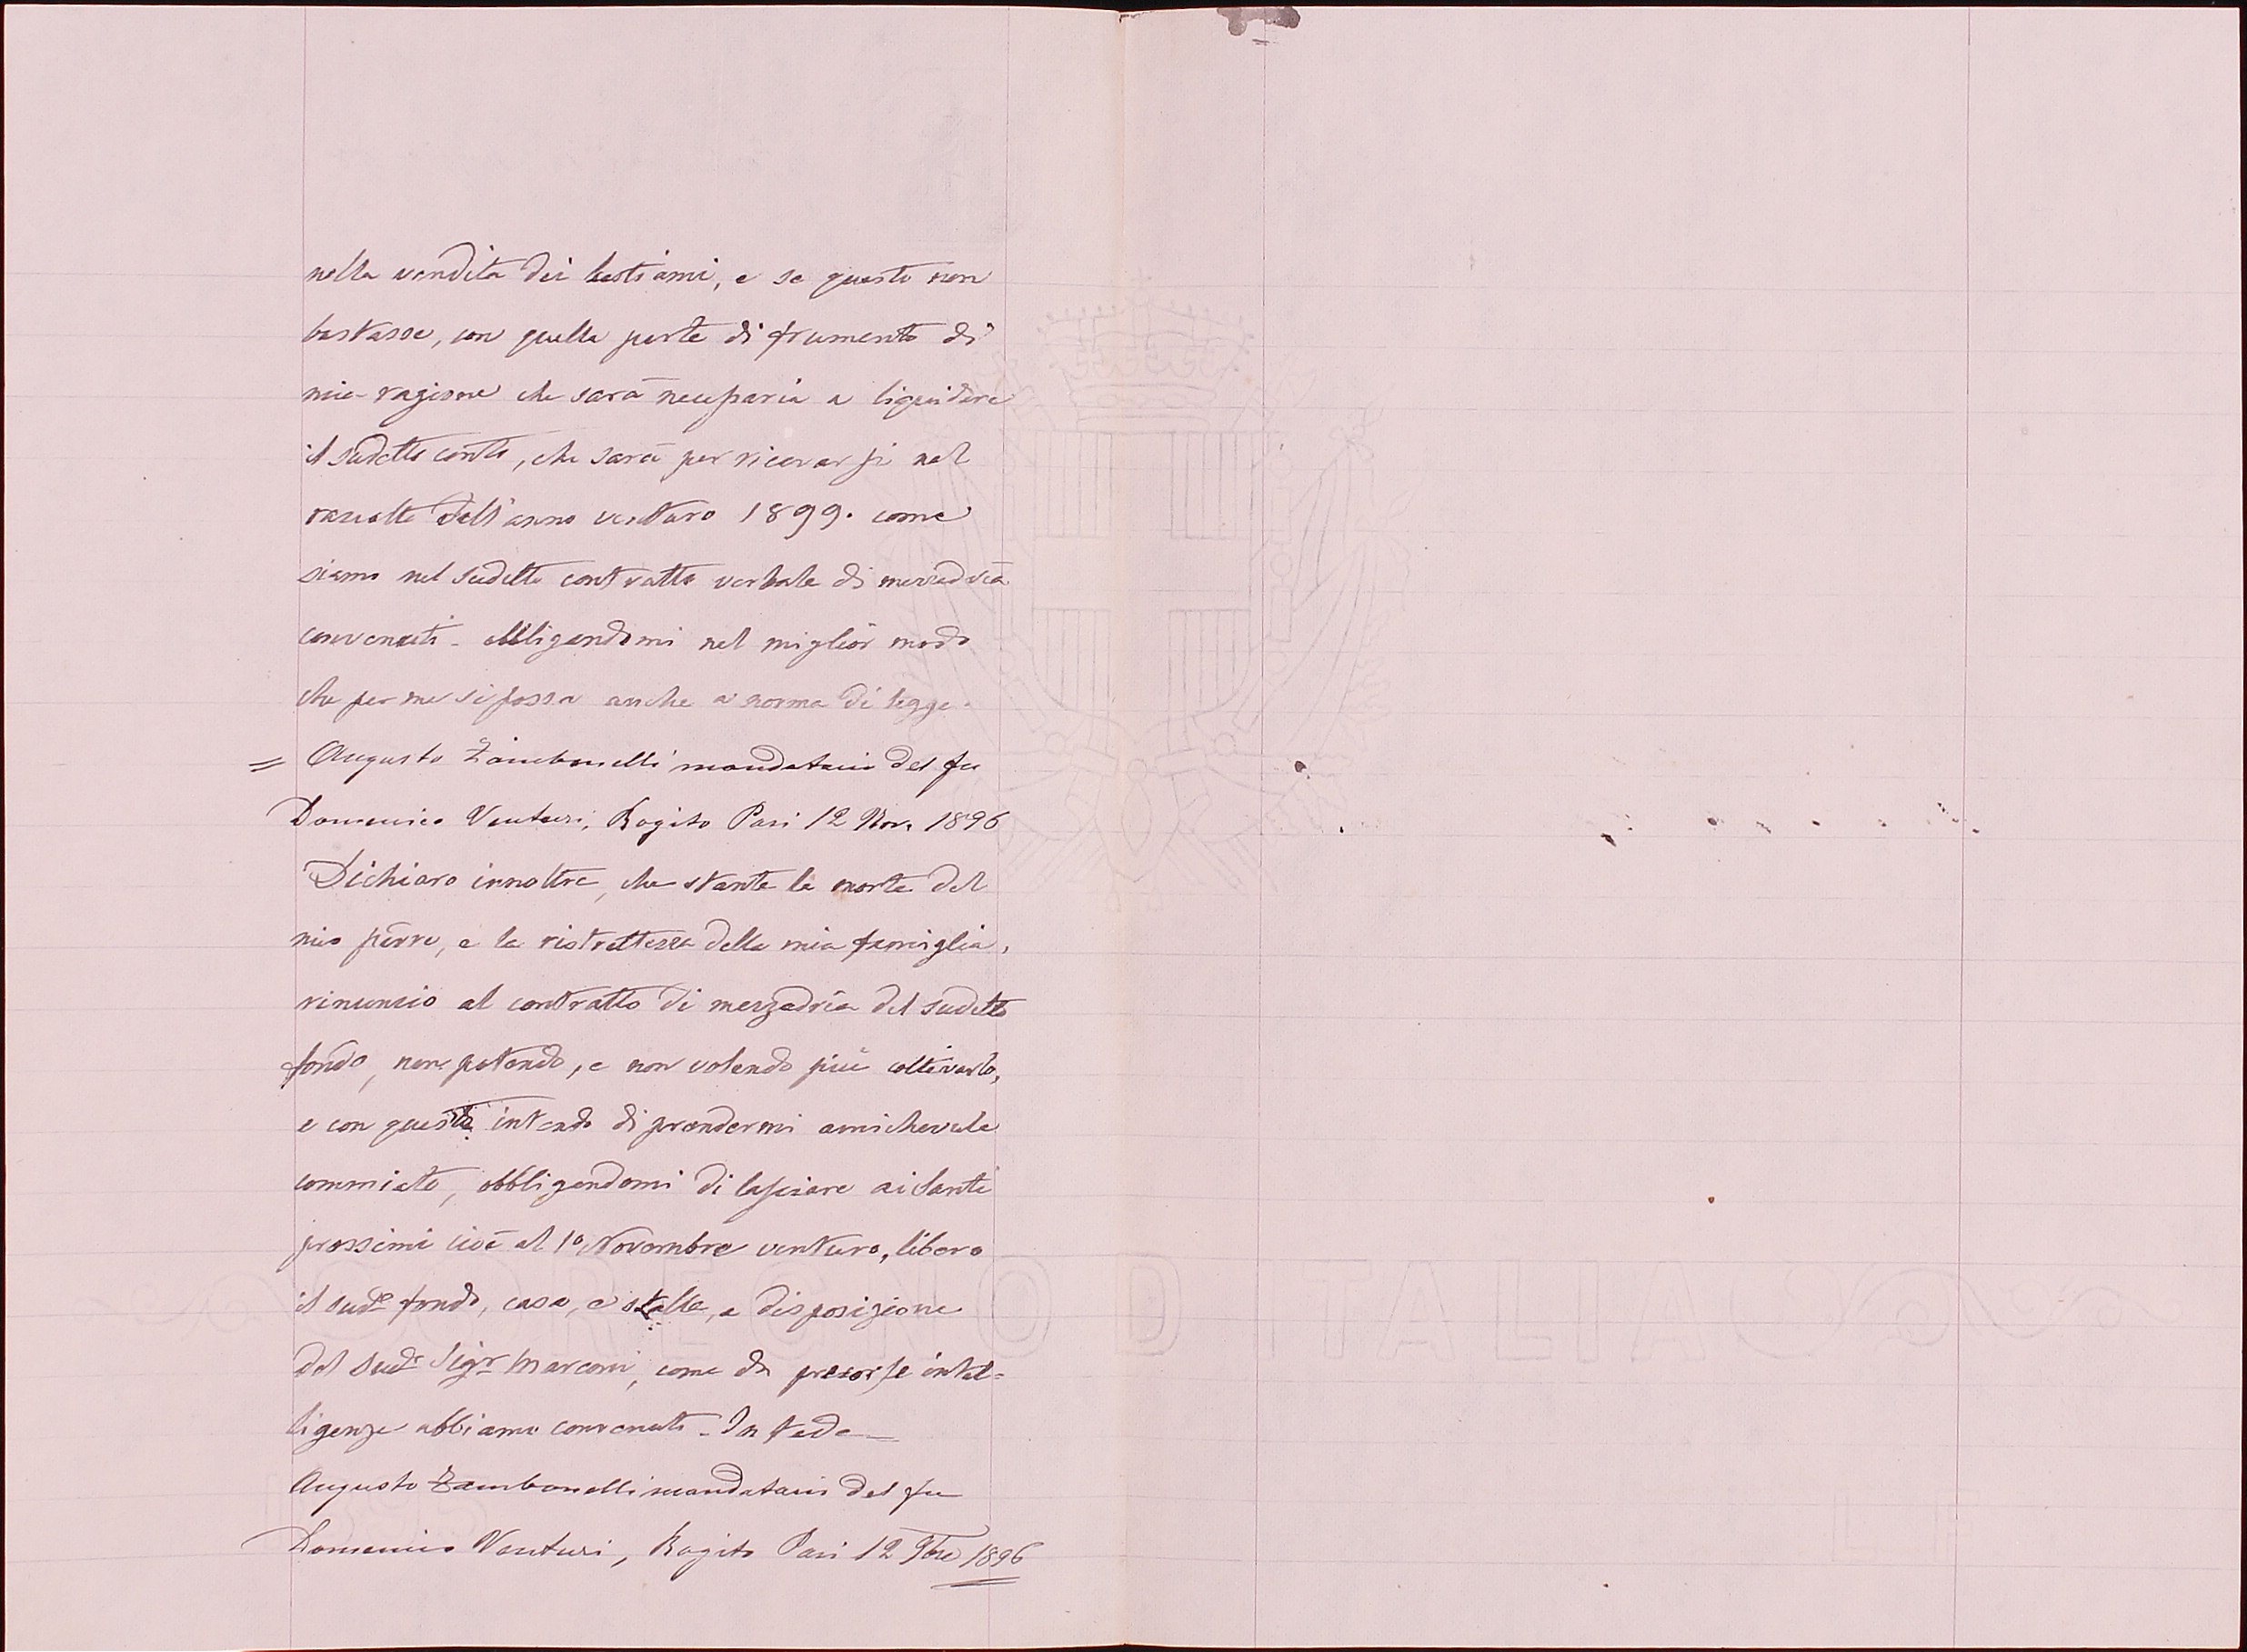 nella vendita dei bestiami, e se questo non
bastasse, con quella parte di frumento di
mia ragione che sarà necessaria a liquidare
il sudetto conto, che sarà per ricavarsi nel
raccolto dell'anno venturo 1899. come
siamo nel sudetto contratto verbale di mezzadria
convenuti - obbligandomi nel miglior modo
che per me si possa anche a norma di legge.
= Augusto Zambonelli mandatario del fu
Domenico Venturi, Rogito Pasi 12 Nov. 1896
Dichiaro innoltre, che stante la morte del
mio, e la ristrettezza della mia famiglia,
rinunzio al contratto di mezzadria del sudetto
fondo, non potendo, e non volendo più coltivarlo,
e con questo intendo di prendermi amichevole
commiato, obbligandomi di lasciare ai Santi
prossimi cioè al 1º Novembre venturo, libero
il sudº fondo, casa, e stalla, a disposizione
del sudº Sigr Marconi, come da precorse intel=
ligenze abbiamo convenuto - In fede —
Augusto Zambonelli mandatario del fu
Domenico Venturi, Rogito Pasi 12 9bre 1896
REGNO D ITALIA